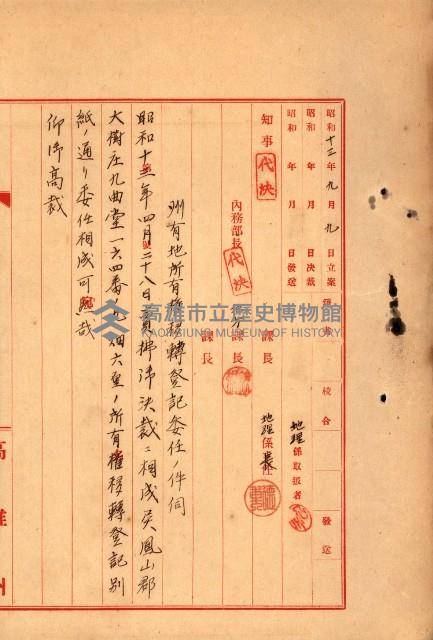 昭和十二年九月九日立案
昭和 年 月 日決裁
昭和 年 月 日發送
校合
發送
地理係取扱者
知事 代決
內務部長 代決
課長
地理係主任
課長
州有地所有權移轉登記委任ノ件伺
昭和十二年四月二十八日
拂下決裁ニ相成矣鳳山郡
大樹庄九曲堂一六四番ノ
畑六厘ノ所有權移轉登記別
紙ノ通リ委任相成可然哉
仰御高裁
高雄州
高雄市立歷史博物館
KAOHSIUNG MUSEUM OF HISTORY